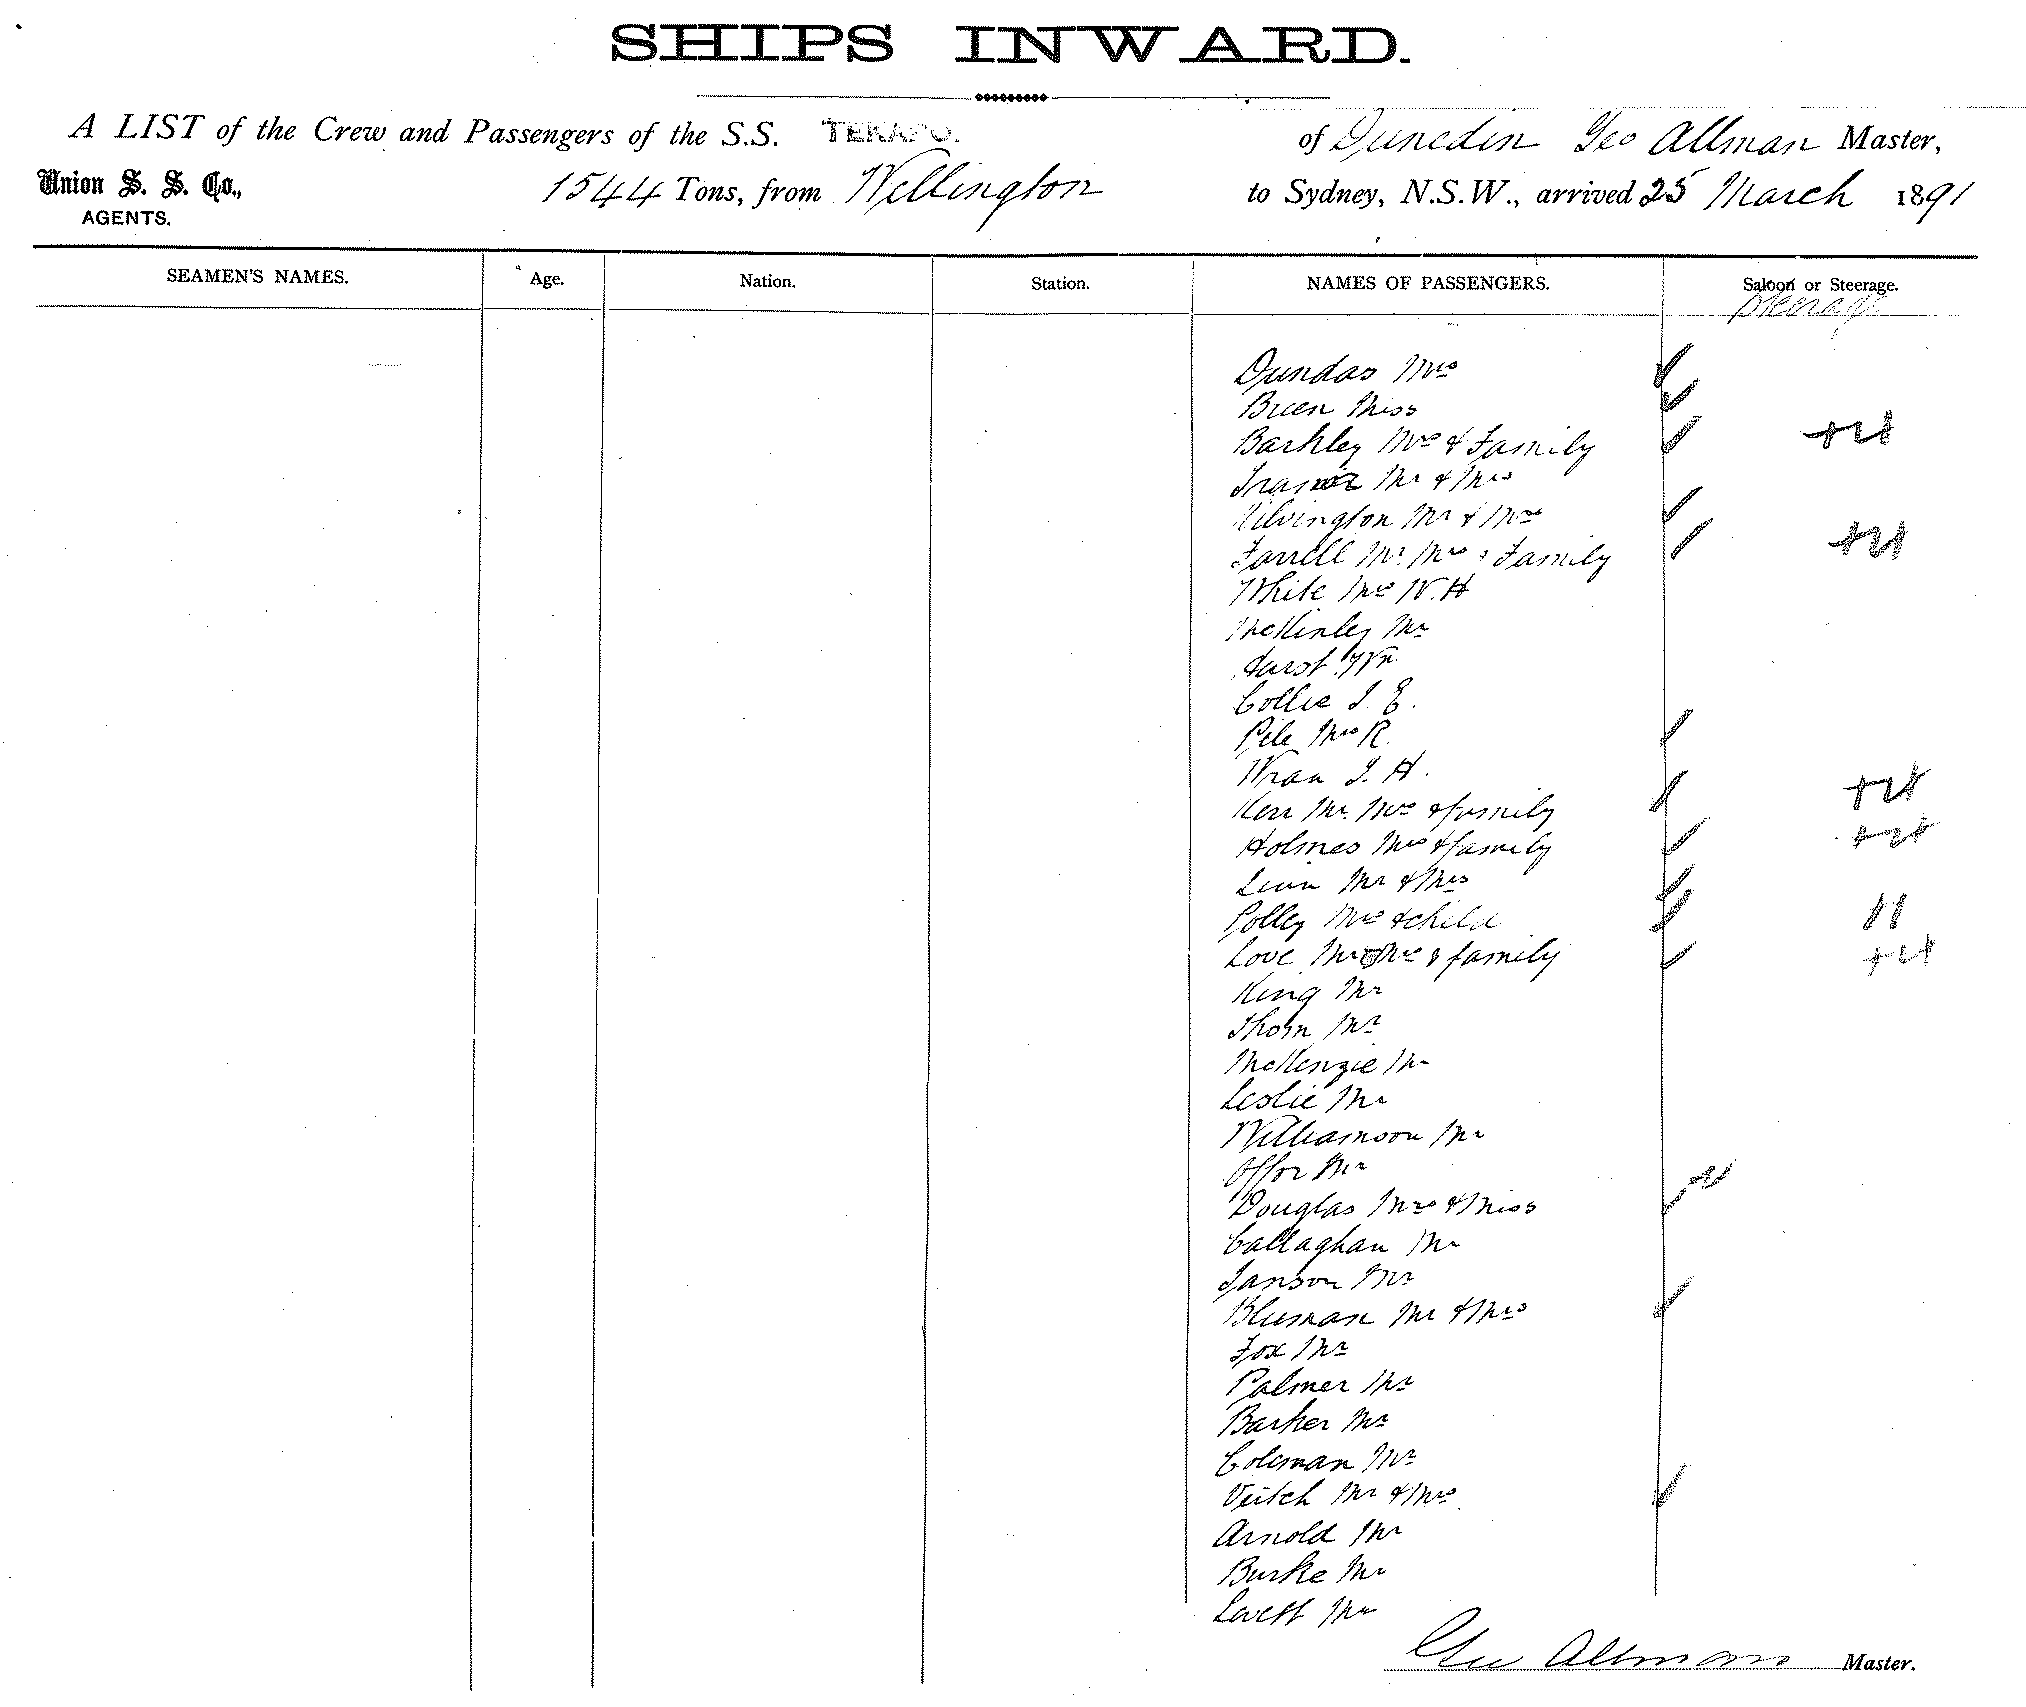 SHIPS INWARD.
A LIST of the Crew and Passengers of the S.S. TEKAPO. of Dunedin Geo Allman Master,
Union S. S. Co., 1544 Tons, from Wellington to Sydney, N.S.W., arrived 25 March 1891
AGENTS.
SEAMEN'S NAMES. Age. Nation. Station. NAMES OF PASSENGERS. Saloon or Steerage.
Steerage
Dundas Mrs
Breen Miss
Barkley Mrs & Family
Mr & Mrs
Kilvington Mr & Mrs
Farrell Mr Mrs & Family
White Mrs W. H
McKinley Mr
Collie J. E.
Pile Mrs R.
Wran J. H.
Kerr Mr. Mrs & family
Holmes Mrs & family
Mr & Mrs
Polley Mrs & child
Love Mr Mrs & family
King Mr
Thorn Mr
McKenzie Mr
Leslie Mr
Williamson Mr
Offor Mr
Douglas Mrs & Miss
Callaghan Mr
Janson Mr
Bluman Mr & Mrs
Fox Mr
Palmer Mr
Barker Mr
Coleman Mr
Veitch Mr & Mrs
Arnold Mr
Burke Mr
Levett Mr
Geo Allman Master.